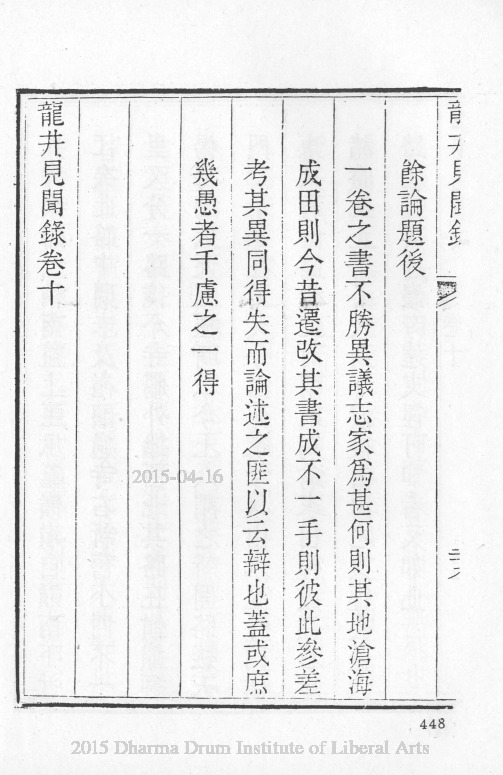 龍井見聞錄
餘論題後
一卷之書不勝異議志家爲甚何則其地滄海
成田則今昔遷改其書成不一手則彼此參差
考其異同得失而論述之匪以云辯也蓋或庶
幾愚者千慮之一得
龍井見聞錄卷十
2015-04-16
448
2015 Dharma Drum Institute of Liberal Arts